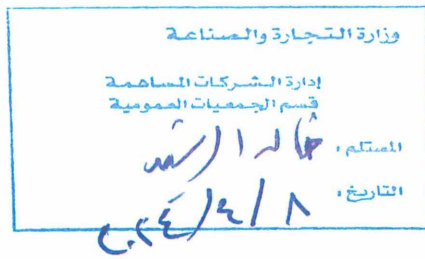 وزارة التجارة والصناعة
إدارة الشركات المساهمة
قسم الجمعيات العمومية
المستلم: خالد الرشد
التاريخ: ٨/٤/٢٠٢٤